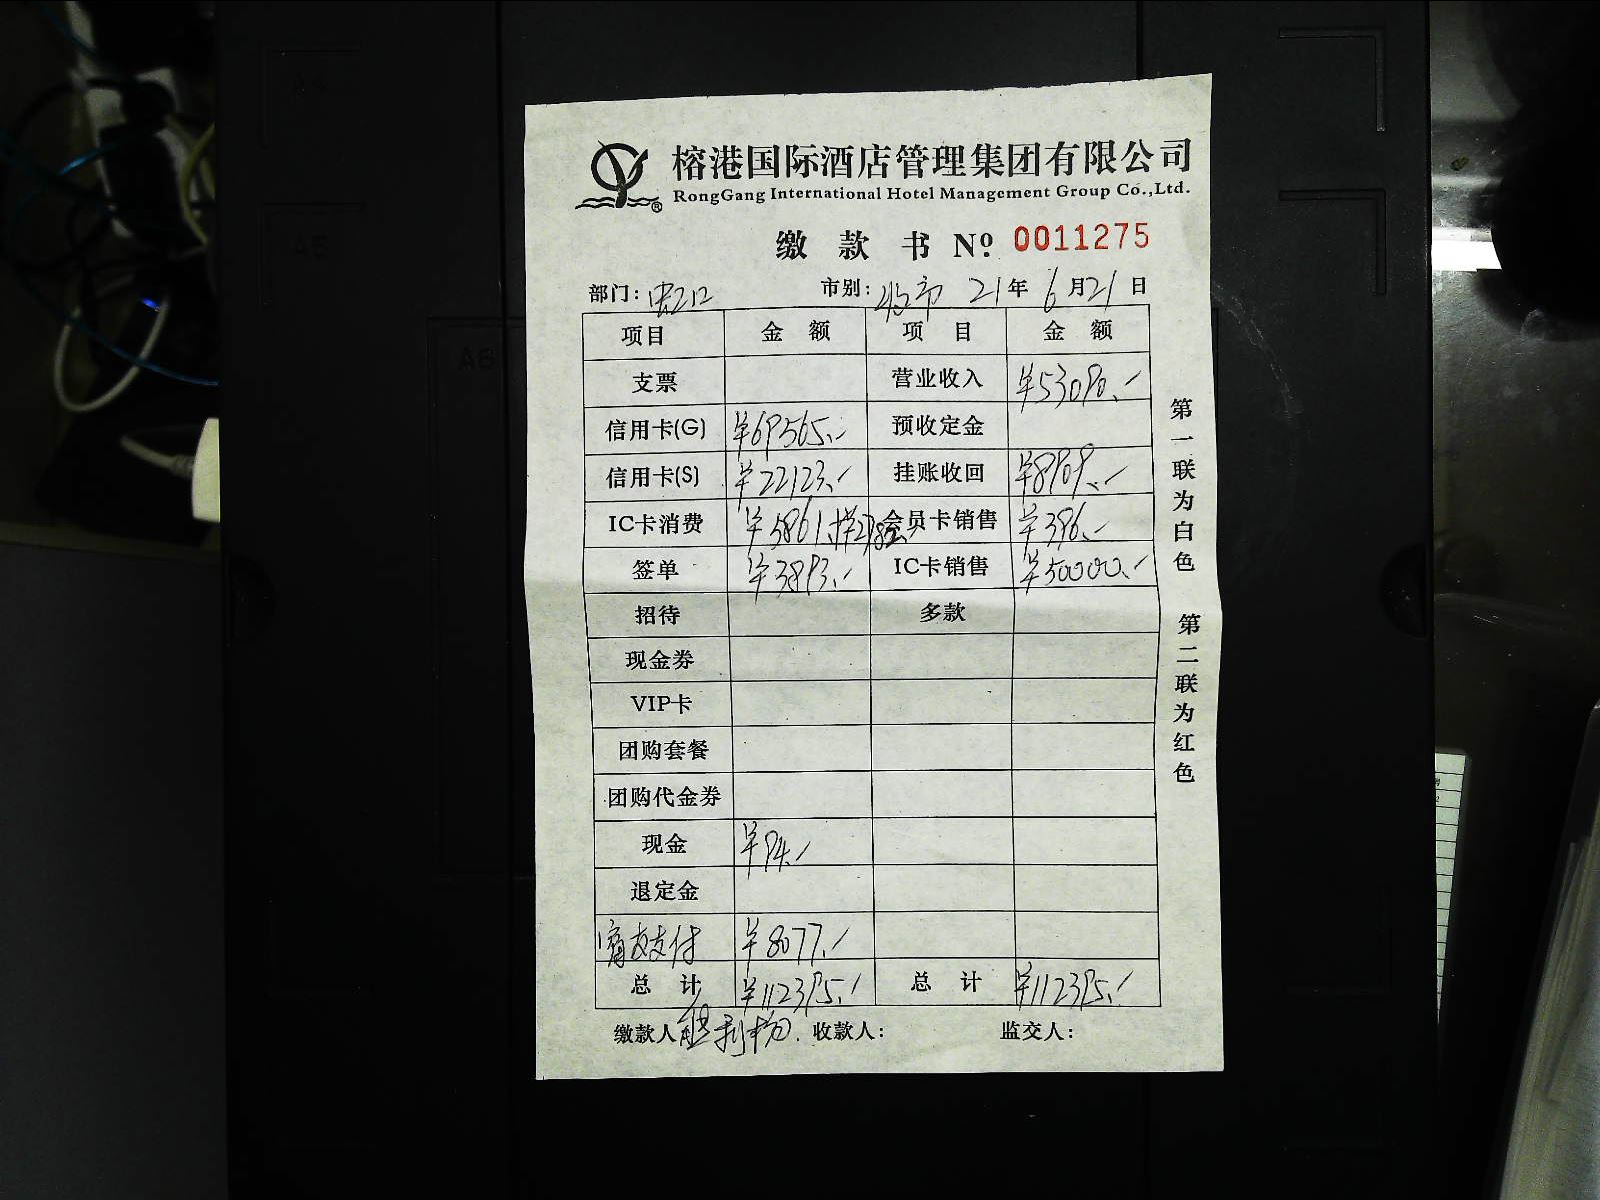 榕港国际酒店管理集团有限公司
RongGang International Hotel Management Group Co.,Ltd.
缴款书 Nº. 0011275
部门: 市别: 21年6月21日
项目 金额 项目 金额
支票 营业收入 ¥53090.-
信用卡(G) ¥69565.- 预收定金
信用卡(S) ¥22123.- 挂账收回 ¥8909.-
IC卡消费 ¥5861.+¥2782 会员卡销售 ¥396.-
签单 ¥3893.- IC卡销售 ¥50000.-
招待 多款
现金券
VIP卡
团购套餐
团购代金券
现金 ¥94.-
退定金
支付 ¥8077.-
总计 ¥112395.- 总计 ¥112395.-
缴款人 收款人: 监交人:
第一联为白色 第二联为红色